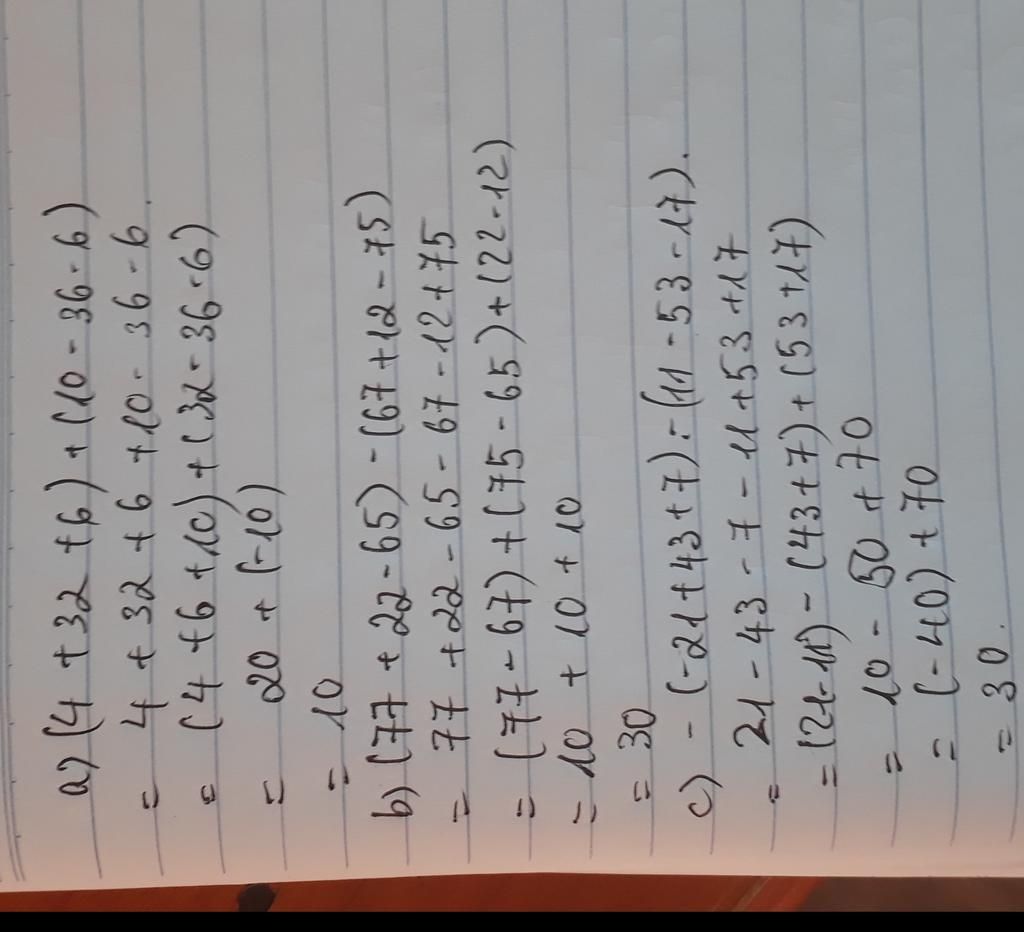 a) (4 + 32 + 6) + (10 - 36 - 6)
= 4 + 32 + 6 + 10 - 36 - 6
= (4 + 6 + 10) + (32 - 36 - 6)
= 20 + (-10)
= 10
b) (77 + 22 - 65) - (67 + 12 - 75)
= 77 + 22 - 65 - 67 - 12 + 75
= (77 - 67) + (75 - 65) + (22 - 12)
= 10 + 10 + 10
= 30
c) - (-21 + 43 + 7) - (11 - 53 - 17).
= 21 - 43 - 7 - 11 + 53 + 17
= (21 - 11) - (43 + 7) + (53 + 17)
= 10 - 50 + 70
= (-40) + 70
= 30.